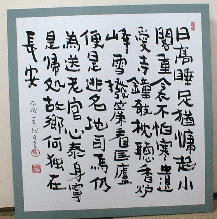 日高睡足猶慵起小
閣重衾不怕寒遺
愛寺鐘敧枕聽香炉
峰雪撥簾看匡廬
便是逃名地司馬仍
為送老官心泰身寧
是帰処故郷何獨在
長安